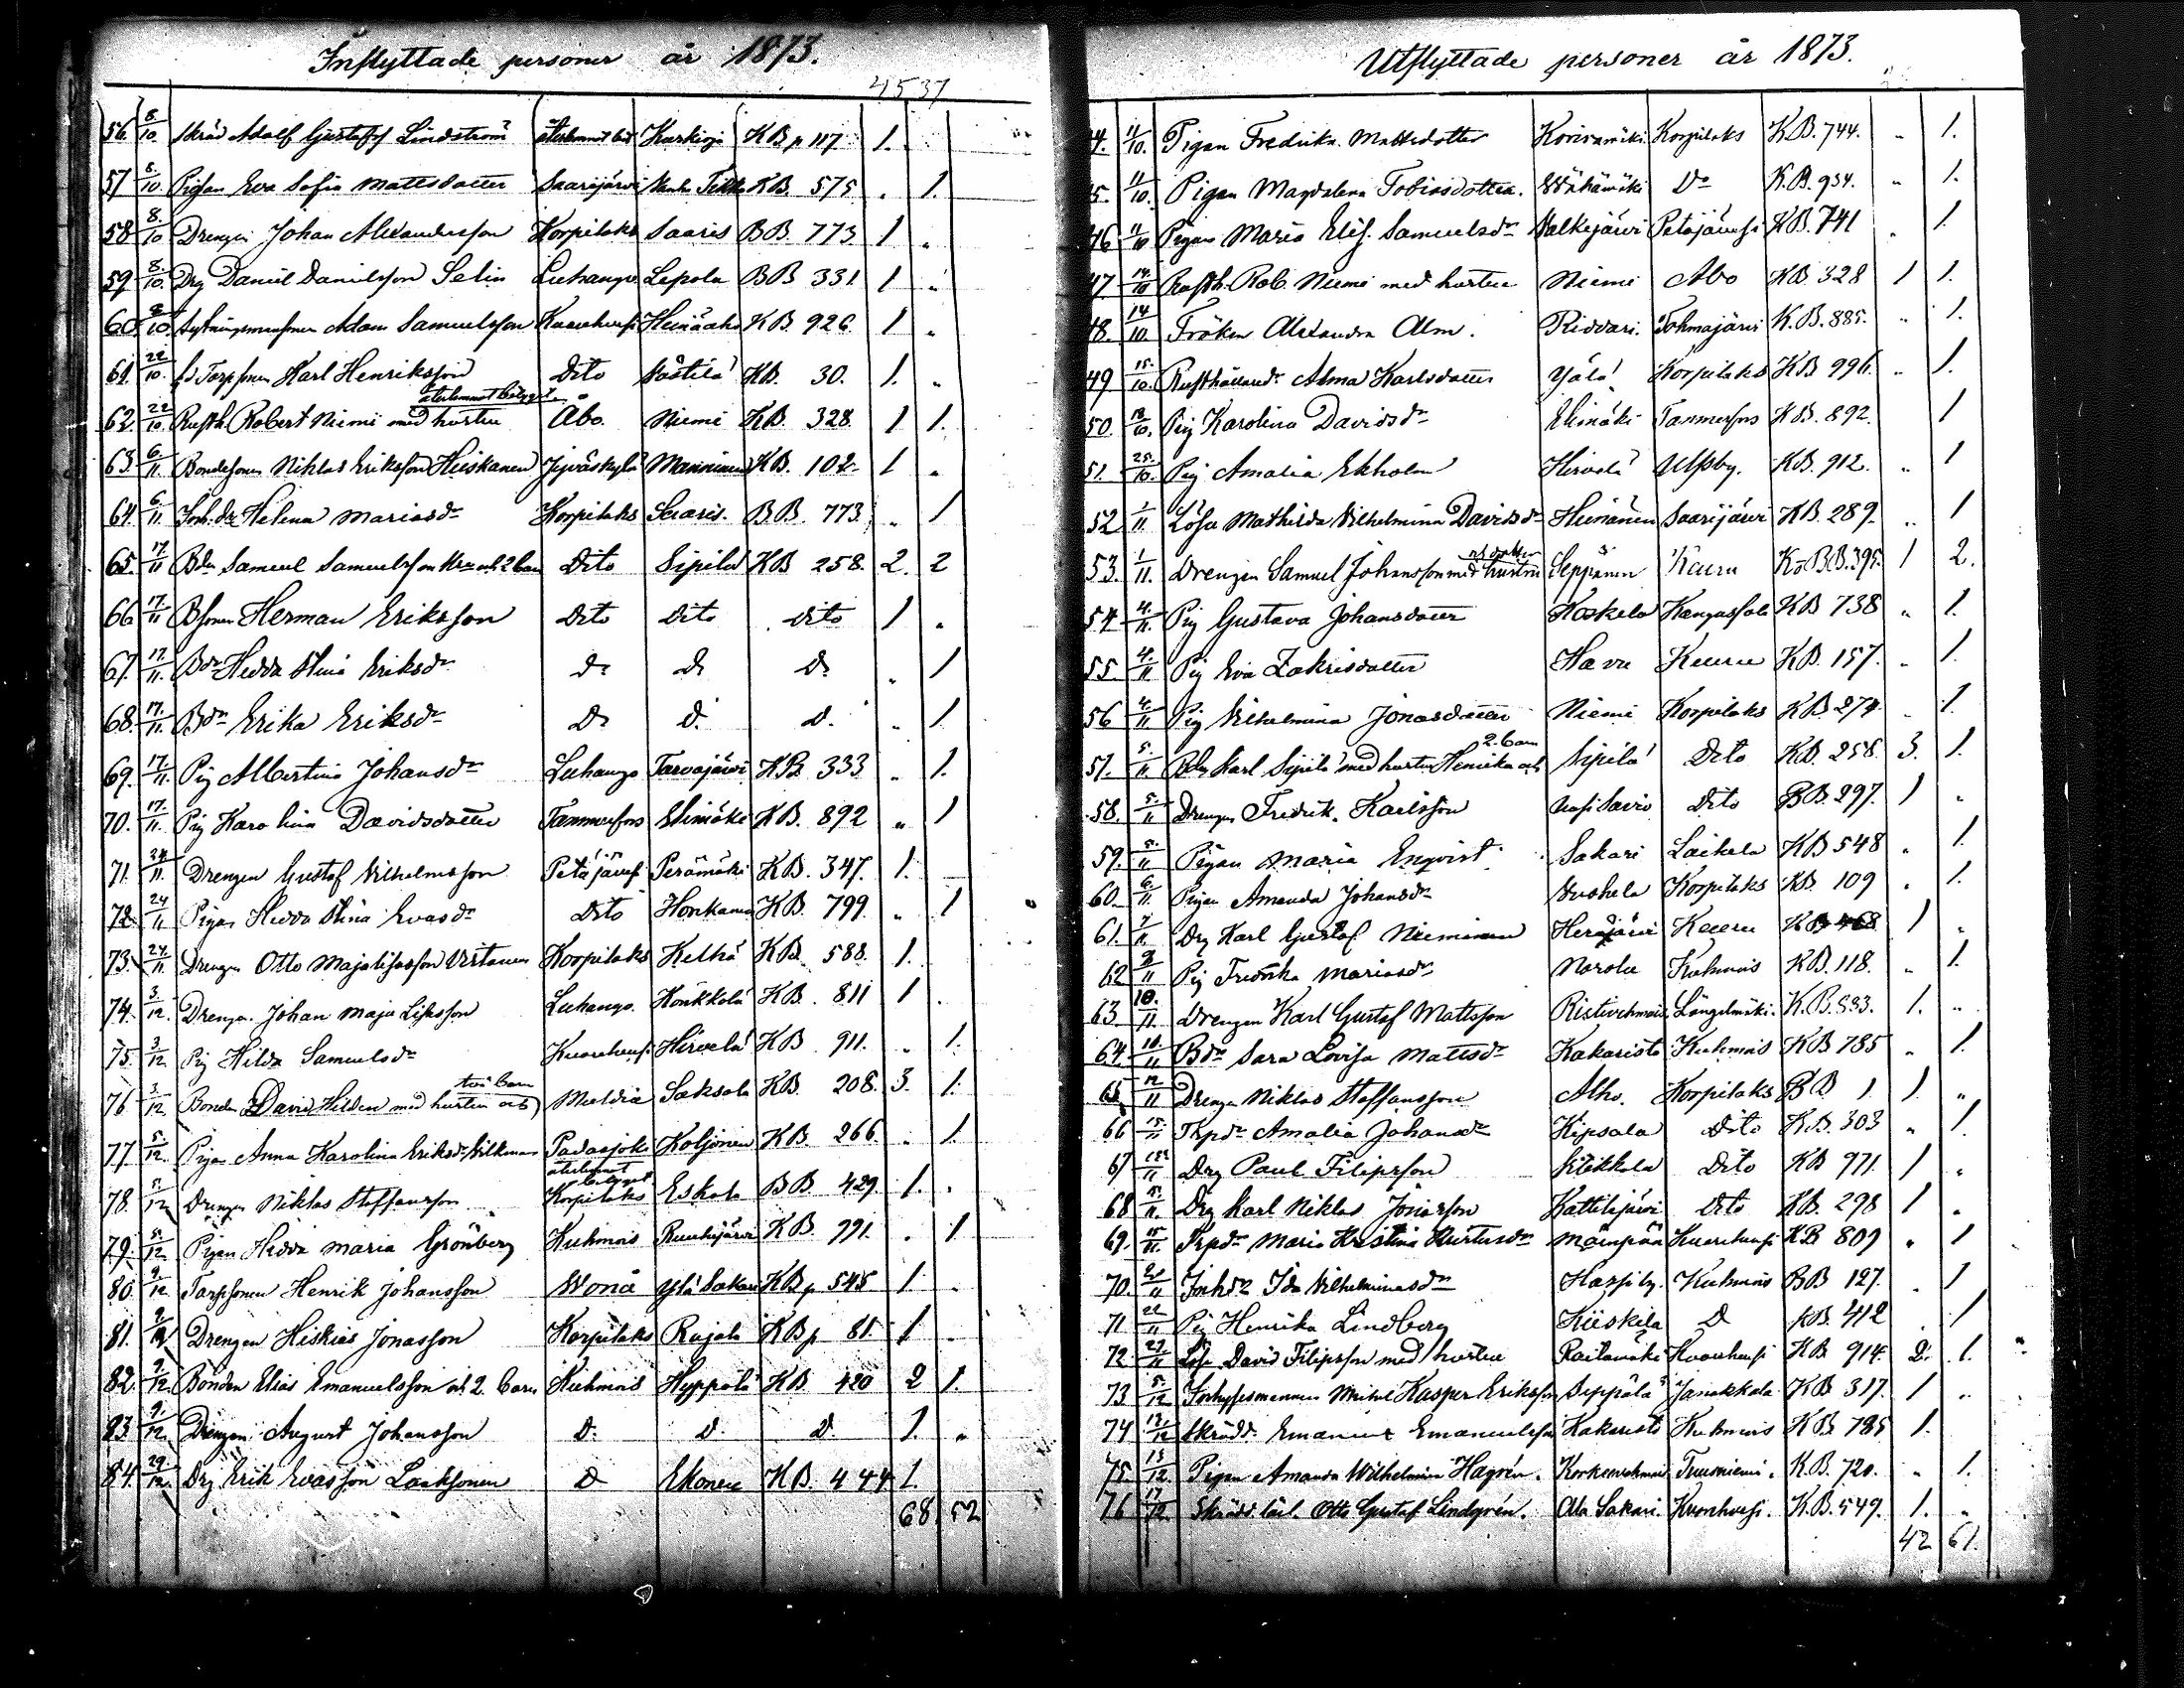 Inflyttade personer år 1873.
4537
56. 8/10. Skräd Adolf Gustafsf Lindström Kurkiojs KB p 117 1.
57 8/10. Pigan Eva Sofia Mattsdotter Saarijärvi KB. 575 „ 1.
58 8/10 Drengen Johan Alexandersson Korpilaks Saaris BB. 773 1 „
59 8/10. Drg Daniel Danielsson Selin Luhango Lepola BB 331. 1 „
60 8/10. Adam Samuelsson Kuorehvesi Heinäaho KB. 926. 1 „
61. 22/10. Karl Henriksson Dito KB. 30. 1. „
återkommit betyget
62. 22/10. Rusth. Robert Niemi med hustru Åbo. Niemi KB. 328. 1 1.
63 6/11. Bondesonen Niklas Eriksson Heiskanen Jyväskylä Manninen KB. 102. 1 „
64. 6/11. Inh. dr Helena Mariasdr Korpilaks Saaris. BB. 773 „ 1
65. 17/11 Bdn Samuel Samuelsson och 2 barn Dito Sipilä KB 258. 2. 2
66 17/11 Bsonen Herman Eriksson Dito Dito Dito 1 „
67. 17/11. Bdr Hedda Stina Eriksdr Do Do Do „ 1
68. 17/11. Bdr Erika Eriksdr Do Do Do „ 1.
69. 17/11. Pig Albertina Johansdr Luhango Tarvajärvi KB 333 „ 1.
70. 17/11. Pig Karolina Davidsdotter Tammerfors Elimäki KB. 892 „ 1
71. 24/11. Drengen Gustaf Vilhelmsson Petäjävesi Perämäki KB. 347. 1.
72. 24/11 Pigan Hedda Stina Evasdr Dito Honkanen KB. 799 „ 1
73. 24/11 Drengen Otto Majalisasson Virtanen Korpilaks Kelhä KB. 588. 1.
74. 3/12. Drengen Johan Maja Lisasson Luhango. Honkkola KB. 811 1
75. 3/12 Pig Hilda Samuelsdr Kuorehvesi Hirvelä KB 911. „ 1.
två barn
76 3/12 Bonden David Hilden med hustru och Saksala KB. 208. 3. 1.
77 5/12. Pigan Anna Karolina Eriksdr Padasjoki Koljonen KB. 266. „ 1.
återkommit betyget
78. 5/12 Drengen Niklas Steffansson Korpilaks Eskola BB 429. 1. „
79. 5/12. Pigan Hedda Maria Grönberg Kuhmois Ruuhijärvi KB. 791. „ 1
80. 9/12. Torpsonen Henrik Johansson Ylä Sakari KB p 548 1.
81. 9/12 Drengen Hiskias Jonasson Korpilaks Rajala KB p 81. 1
82. 9/12. Bonden Elias Emanuelsson och 2 barn Kuhmois Hyppölä KB 420 2 1.
83. 9/12. Drengen August Johansson D. D. D. 1. „
84. 29/12. Drg Erik Evasson Laaksonen D Ekonen KB. 444 1.
68 52
Utflyttade personer år 1873.
44. 11/10. Pigan Fredrika Mattsdotter Korpilaks KB. 744. „ 1.
45. 11/10. Pigan Magdalena Tobiasdotter. Wähämäki Do KB. 934. „ 1.
46 11/10 Pigan Maria Elis. Samuelsdr Valkejärvi Petäjävesi KB. 741 „ 1
47 14/10 Rusth. Rob. Niemi med hustru Niemi Åbo KB. 328 1 1.
48. 14/10. Fröken Alexandra Alm. Riddari. Tohmajärvi KB. 885. „ 1.
49 15/10. Rusthållaredr Alma Karlsdotter Yälä Korpilaks KB 996. „ 1.
50. 18/10. Pig Karolina Davidsdr Elimäki Tammerfors KB. 892. 1
51. 25/10. Pig Amalia Ekholm Hirvelä Ulfsby. KB. 912. „ 1
52 1/11. Lösa Mathilda Vilhelmina Davidsdr Heinänen Saarijärvi KB. 289. „ 1
och dotter
53. 1/11. Drengen Samuel Johansson med hustru Seppänen Keuru BB. 395. 1 2.
54 4/11. Pig Gustava Johansdotter Koskela Kangasala KB 738 „ 1.
55. 4/11 Pig Eva Zakrisdotter Havu Keuru KB. 157. „ 1.
56 4/11 Pig Vilhelmina Jonasdotter Niemi Korpilaks KB. 274. „ 1.
2 barn
57. 5/11. Bdn Karl Sipilä med hustru Henrika och Sipilä Dito KB. 258. 3. 1.
58. 5/11 Drengen Fredrik Karlsson Dito BB. 297. 1 „
59. 5/11 Pigan Maria Enqvist Sakari Laihela KB 548 „ 1.
60. 6/11. Pigan Amanda Johansdr Korpilaks KB. 109 „ 1.
61. 7/11 Drg Karl Gustaf Nieminen Keuru KB 468 1 „
62 8/11 Pig Fredrika Mariasdr Kuhmois KB. 118. „ 1.
63 10/11. Drengen Karl Gustaf Mattsson Ristivehmais Längelmäki. KB. 1. „
64 10/11 Bdr Sara Lovisa Mattsdr Kakaristo Kuhmois KB 785 „ 1.
65 12/11 Drengen Niklas Steffansson Alho. Korpilaks BB 1 1. „
66 15/11 Trpdr Amalia Johansdr Hipsala Dito KB. 303 „ 1.
67 15/11 Drg Paul Filipsson Dito KB 971. 1 „
68 15/11. Drg Karl Niklas Jonasson Kattilajärvi Dito KB. 298 1 „
69. 15/11. Trpdr Maria Kristina Mäenpää Kuorehvesi KB 809 „ 1
70. 20/11 Inhdr Ida Vilhelminasdr Kuhmois BB 127. „ 1
71 22/11 Pig Henrika Lindberg Kiiskilä D KB. 412 „ 1
72. 27/11 Löse David Filipsson med hustru Kuorehvesi KB. 914. 2. 1. „
73 5/12 Kasper Eriksson Seppälä Janakkala KB 317. 1 „
74 12/12 Skrädd. Emanuel Emanuelsson Kakaristo Kuhmois KB. 785 1.
75. 13/12. Pigan Amanda Wilhelmina Hagrén. Tuusniemi. KB. 720. „ 1.
76 17/12. Skrädd. lärl. Otto Gustaf Lindgrén. Ala Sakari. Kuorehvesi. KB. 549. 1. „
42 61.